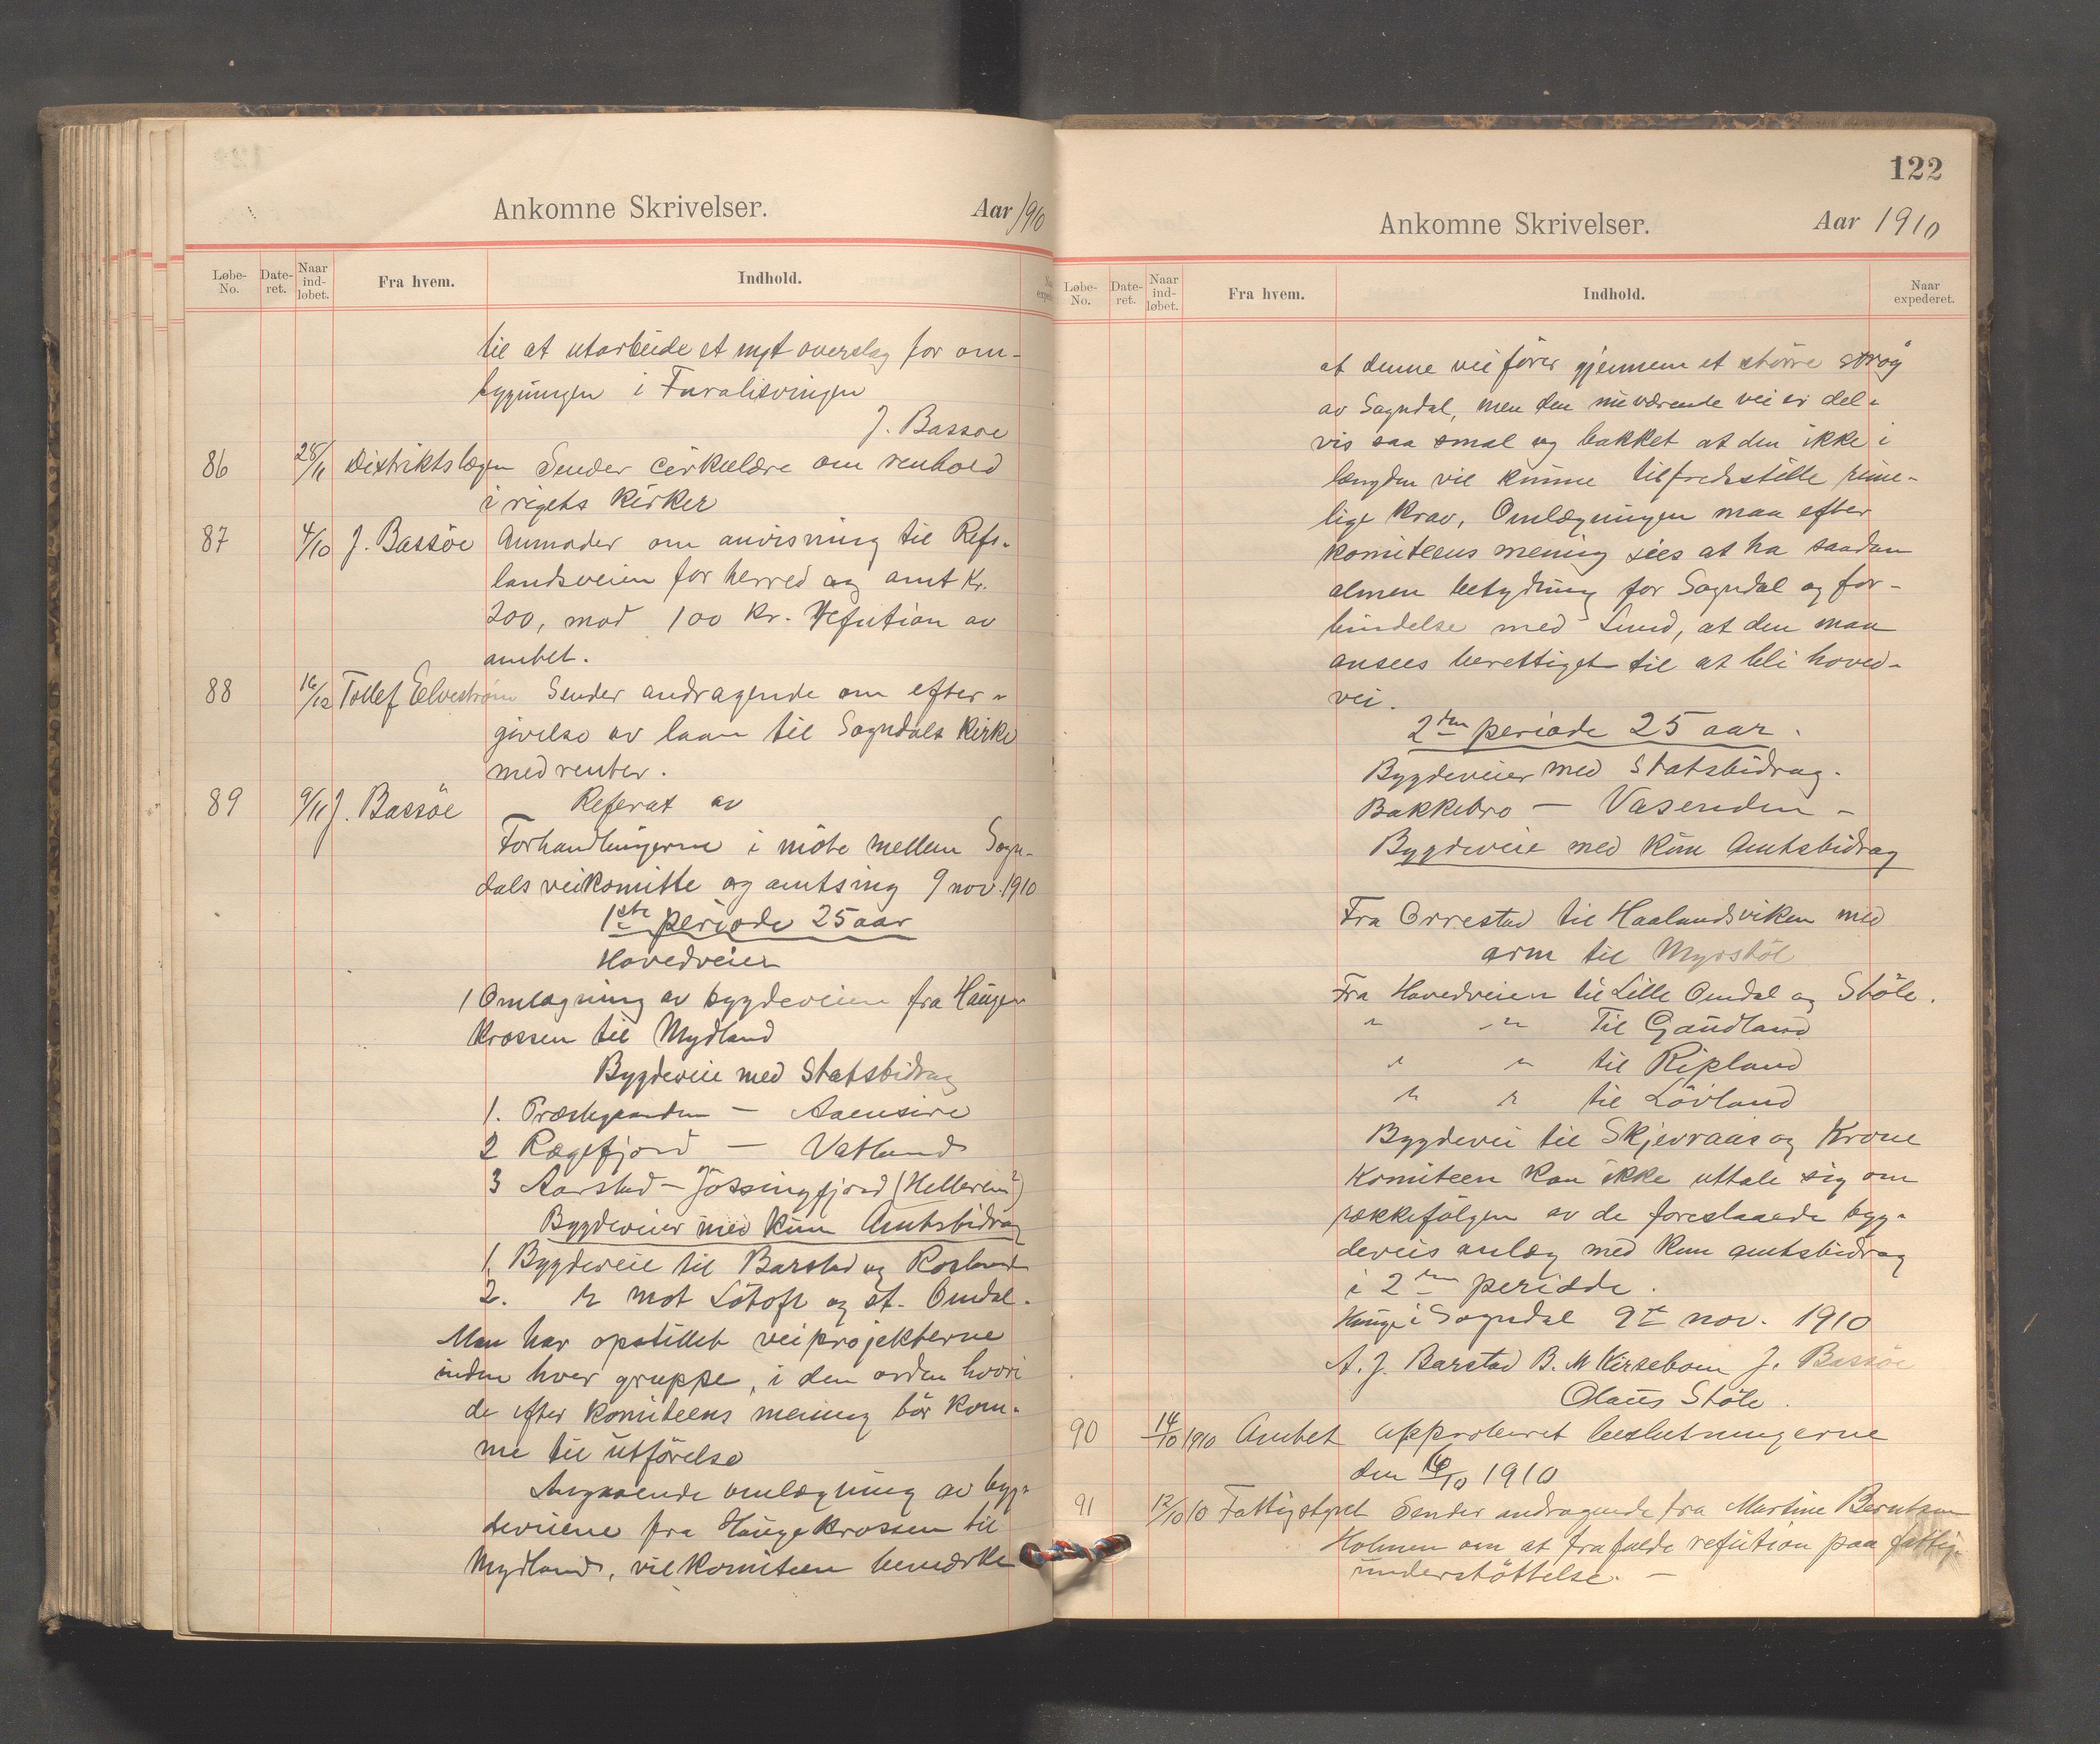 Ankomne Skrivelser. Aar 1910
Løbe-No. Date-ret. Naar ind-løbet. Fra hvem. Indhold.
til at utarbeide et nyt overslag for om-
bygningen i Furalisvingen
J. Bassøe
86 28/11 Distriktslægen Sender cirkulære om renhold
i rigets kirker
87 4/10 J. Bassöe Anmoder om anvisning til Refs-
landsveien for herred og amt Kr.
200, mod 100 kr. Refution av
amtet.
88 16/12 Tollef Eelvestrøm Sender andragende om efter-
givelse av laan til Sogndals Kirke
med renter.
89 9/11 J. Bassöe Referat av
Forhandlingerne i möte mellem Sogn-
dals veikomitte og amtsing 9 nov. 1910
1ste periode 25 aar
Hovedveier
1 Omlagning av bygdeveien fra Hauge
Krossen til Mydland
Bygdeveie med Statsbidrag
1. Præstegaarden — Aaensire
2 Rægefjord — Vatland
3 Aarstad — Jössingfjord (Helleren?)
Bygdeveier med kun Amtsbidrag
1 Bygdeveie til Barstad og Rosland
2. " mot Lötoft og st. Omdal.
Man har opstillet veiprojekterne
inden hver gruppe, i den orden hvori
de efter komiteens mening bör kom-
me til utförelse
Angaaende omlægning av byg-
deveiene fra Haugekrossen til
Mydland, vil komiteen bemærke
122
Ankomne Skrivelser. Aar 1910
Løbe-No. Date-ret. Naar ind-løbet. Fra hvem. Indhold. Naar expederet.
at denne vei förer gjennem et större strög
av Sogndal, men den nuværende vei er del-
vis saa smal og bakket at den ikke i
længden vil kunne tilfredsstille rime-
lige krav. Omlægningen maa efter
komiteens mening sies at ha saadan
almen betydning for Sogndal og for-
bindelse med Lund, at den maa
ansees berettiget til at bli hoved-
vei.
2den periode 25 aar.
Bygdeveier med Statsbidrag.
Bakkebro — Vasenden —
Bygdeveie med kun Amtsbidrag
Fra Orrestad til Haalandsviken med
arm til Myrstöl
Fra Hovedveien til Lille Omdal og Stöle.
" " Til Gaudland
" " til Ripland
" " til Lövland
Bygdevei til Skjevraas og Krone
Komiteen kan ikke uttale sig om
rækkefölgen av de foreslaaede byg-
deveis anlæg med kun amtsbidrag
i 2den periode.
Hauge i Sogndal 9de nov. 1910
A. J. Barstad B. M Kirsebom J. Bassöe
Olaus Stöle.
90 14/10 1910 Amtet approberet beslutningerne
den 14/10 1910
91 12/10 10 Fattigstyret Sender andragende fra Martine Berntsen
Holmen om at frafalde refution paa fattig-
understöttelse. —